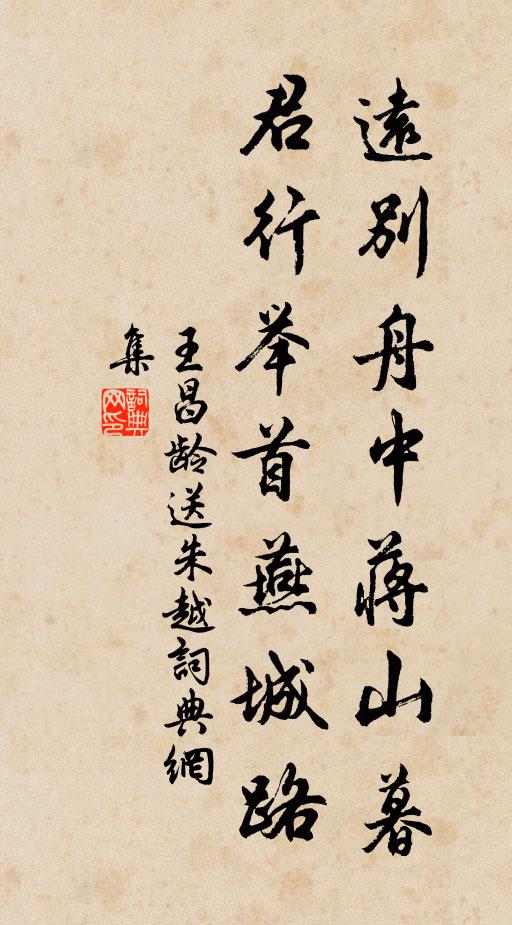 遠别舟中蒋山暮
君行举首燕城路
王昌龄送朱越詞典網
集
詞典
网印